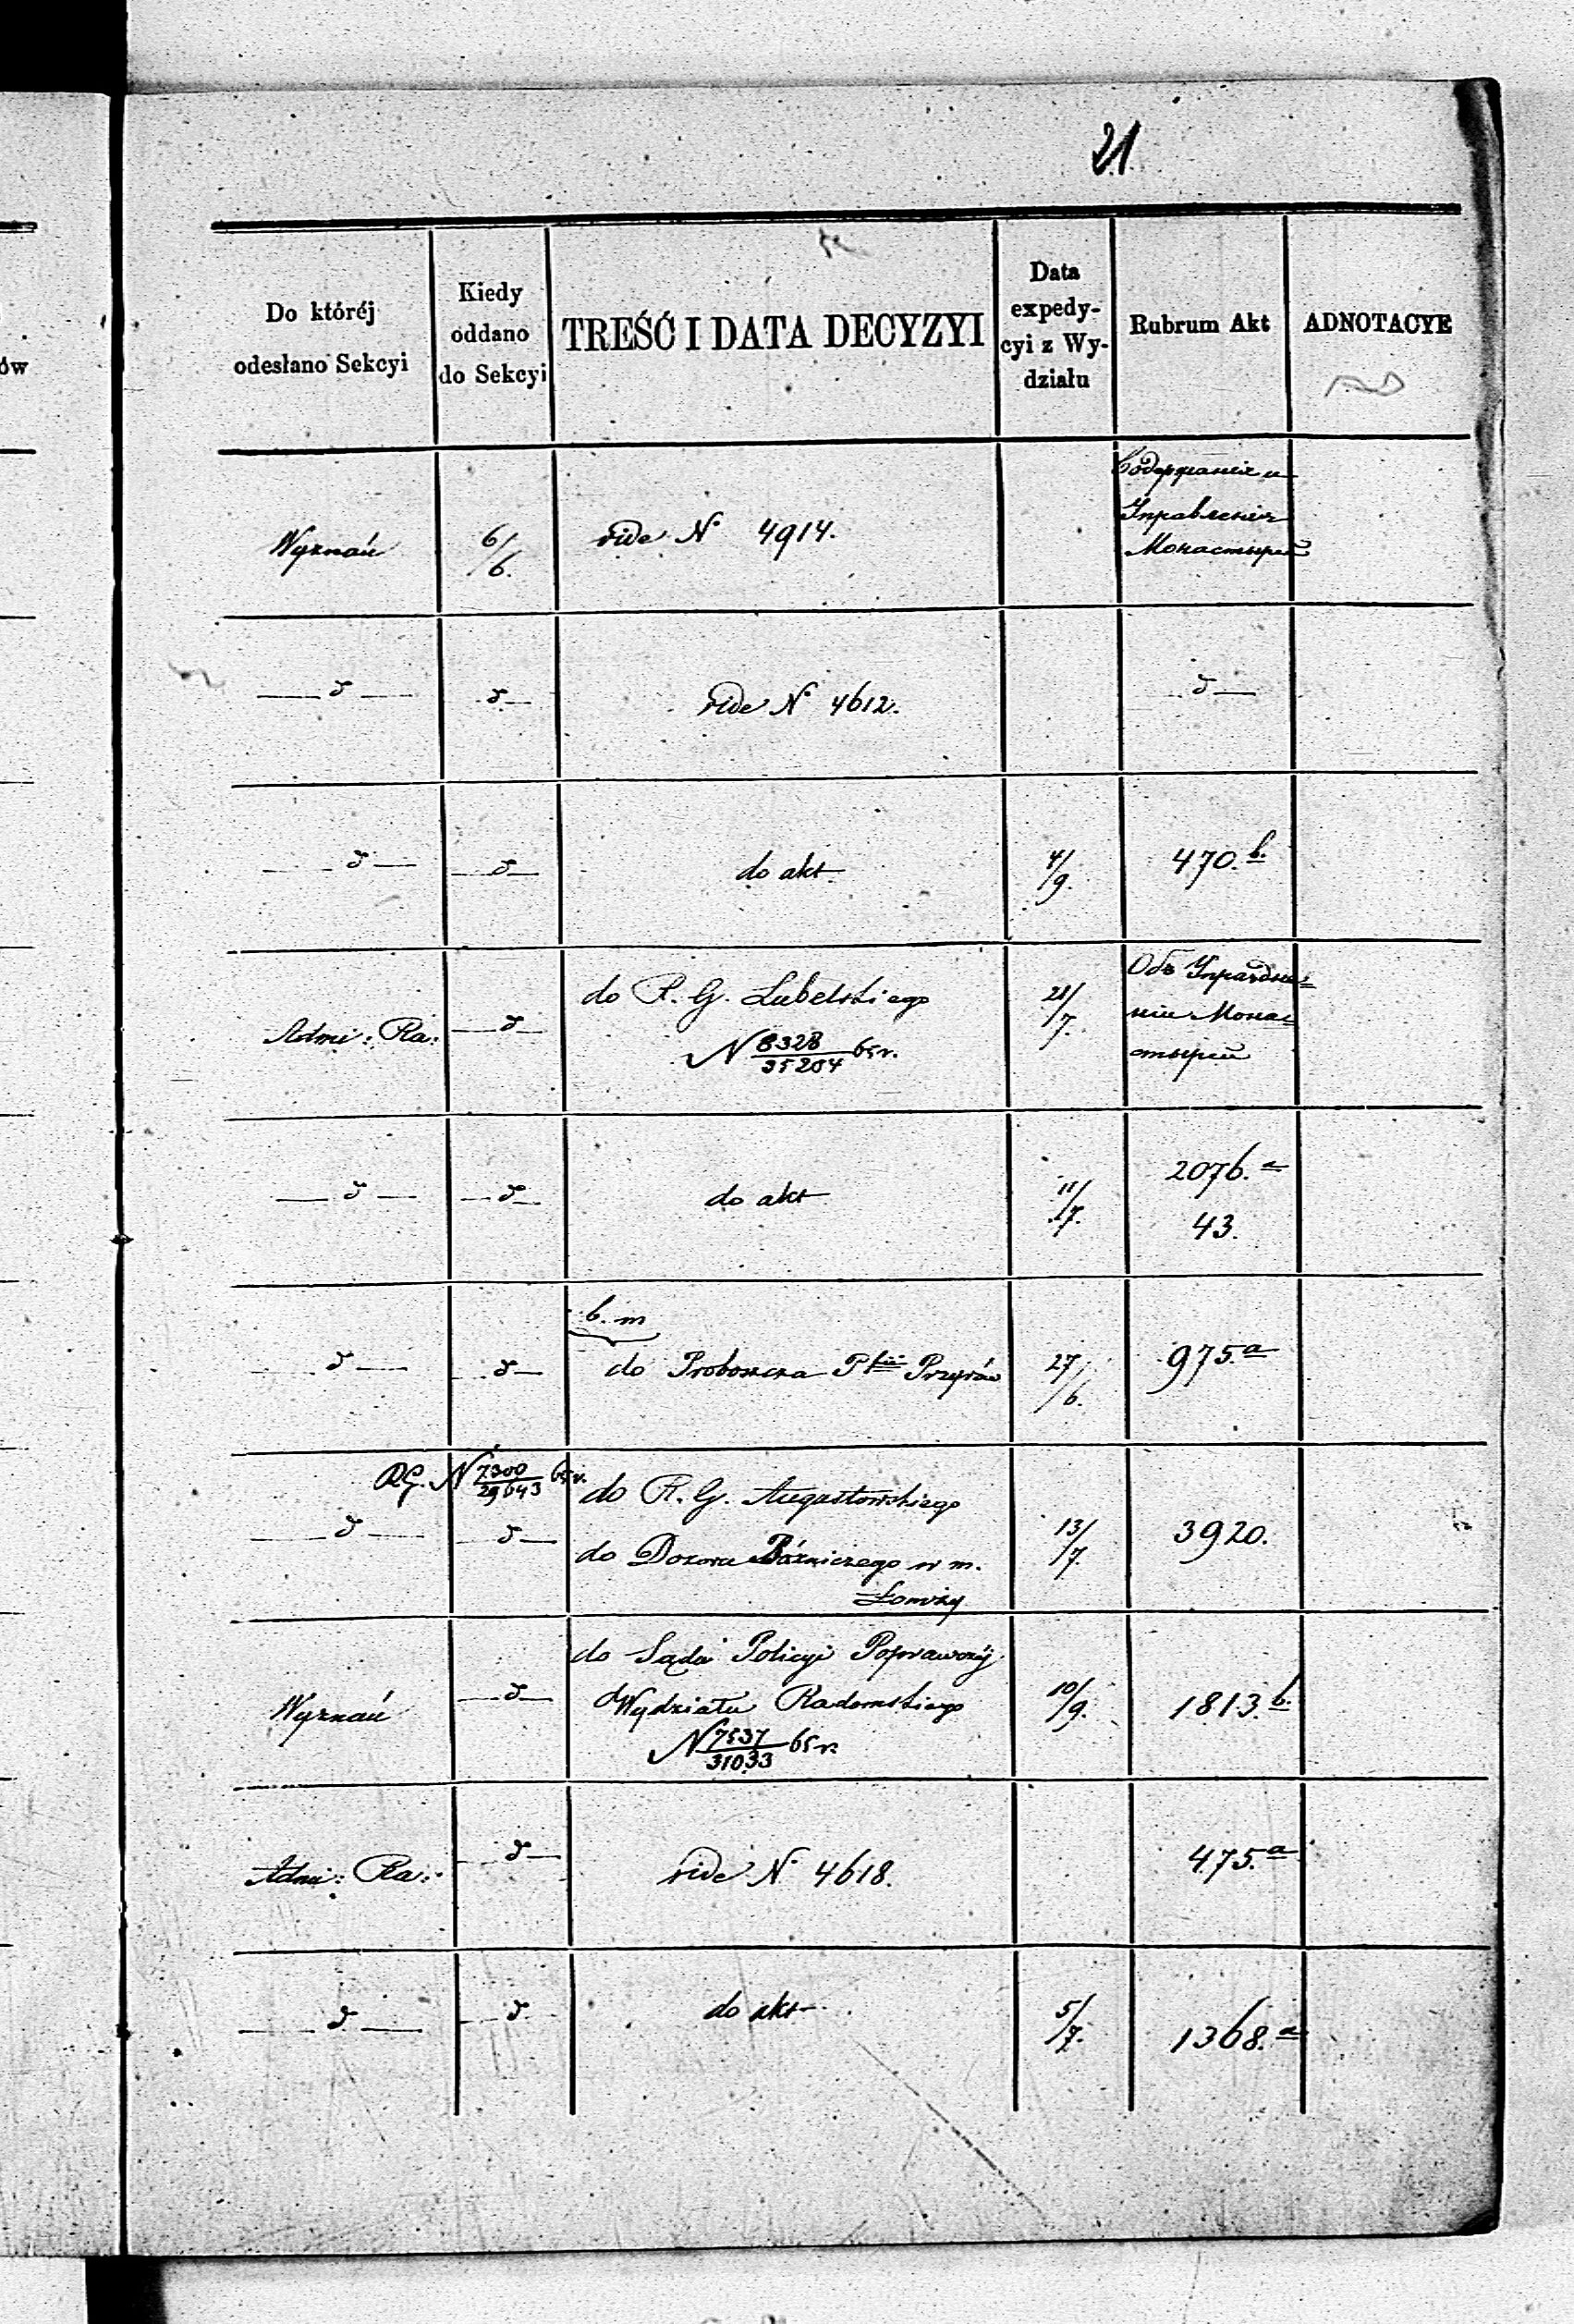 21
Do któréj
odesłano Sekcyi
Kiedy
oddano
do Sekcyi
TREŚĆ I DATA DECYZYI
Data
expedy-
cyi z Wy-
działu
Rubrum Akt
ADNOTACYE
ów
Wyznań
6/6.
vide N° 4914.
Содержание и
Управление
Монастырей
— d —
d —
vide N° 4612.
d —
— d —
— d —
do akt
4/9.
470.b.
Admi: Ra:
— d —
do R. G. Lubelskiego
N 8328/35204 65 r.
21/7.
Объ Упраздне=
нiи Мона=
стырей
— d —
— d —
do akt
11/7.
2076.a
43.
— d —
— d —
b. m
do Proboszcza Pfii Przyrów
27/6.
975.a
RG. N 7300/29643 65 r.
— d —
— d —
do R. G. Augustowskiego
do Dozoru Bóżniczego w m.
Łomży
13/7.
3920.
Wyznań
— d —
do Sądu Policyi Poprawczéj
Wydziału Radomskiego
N 7537/31033 65 r.
10/9.
1813.b.
Admi: Ra:
— d —
vide N° 4618.
475.a
— d —
— d
do akt
5/7.
1368.a